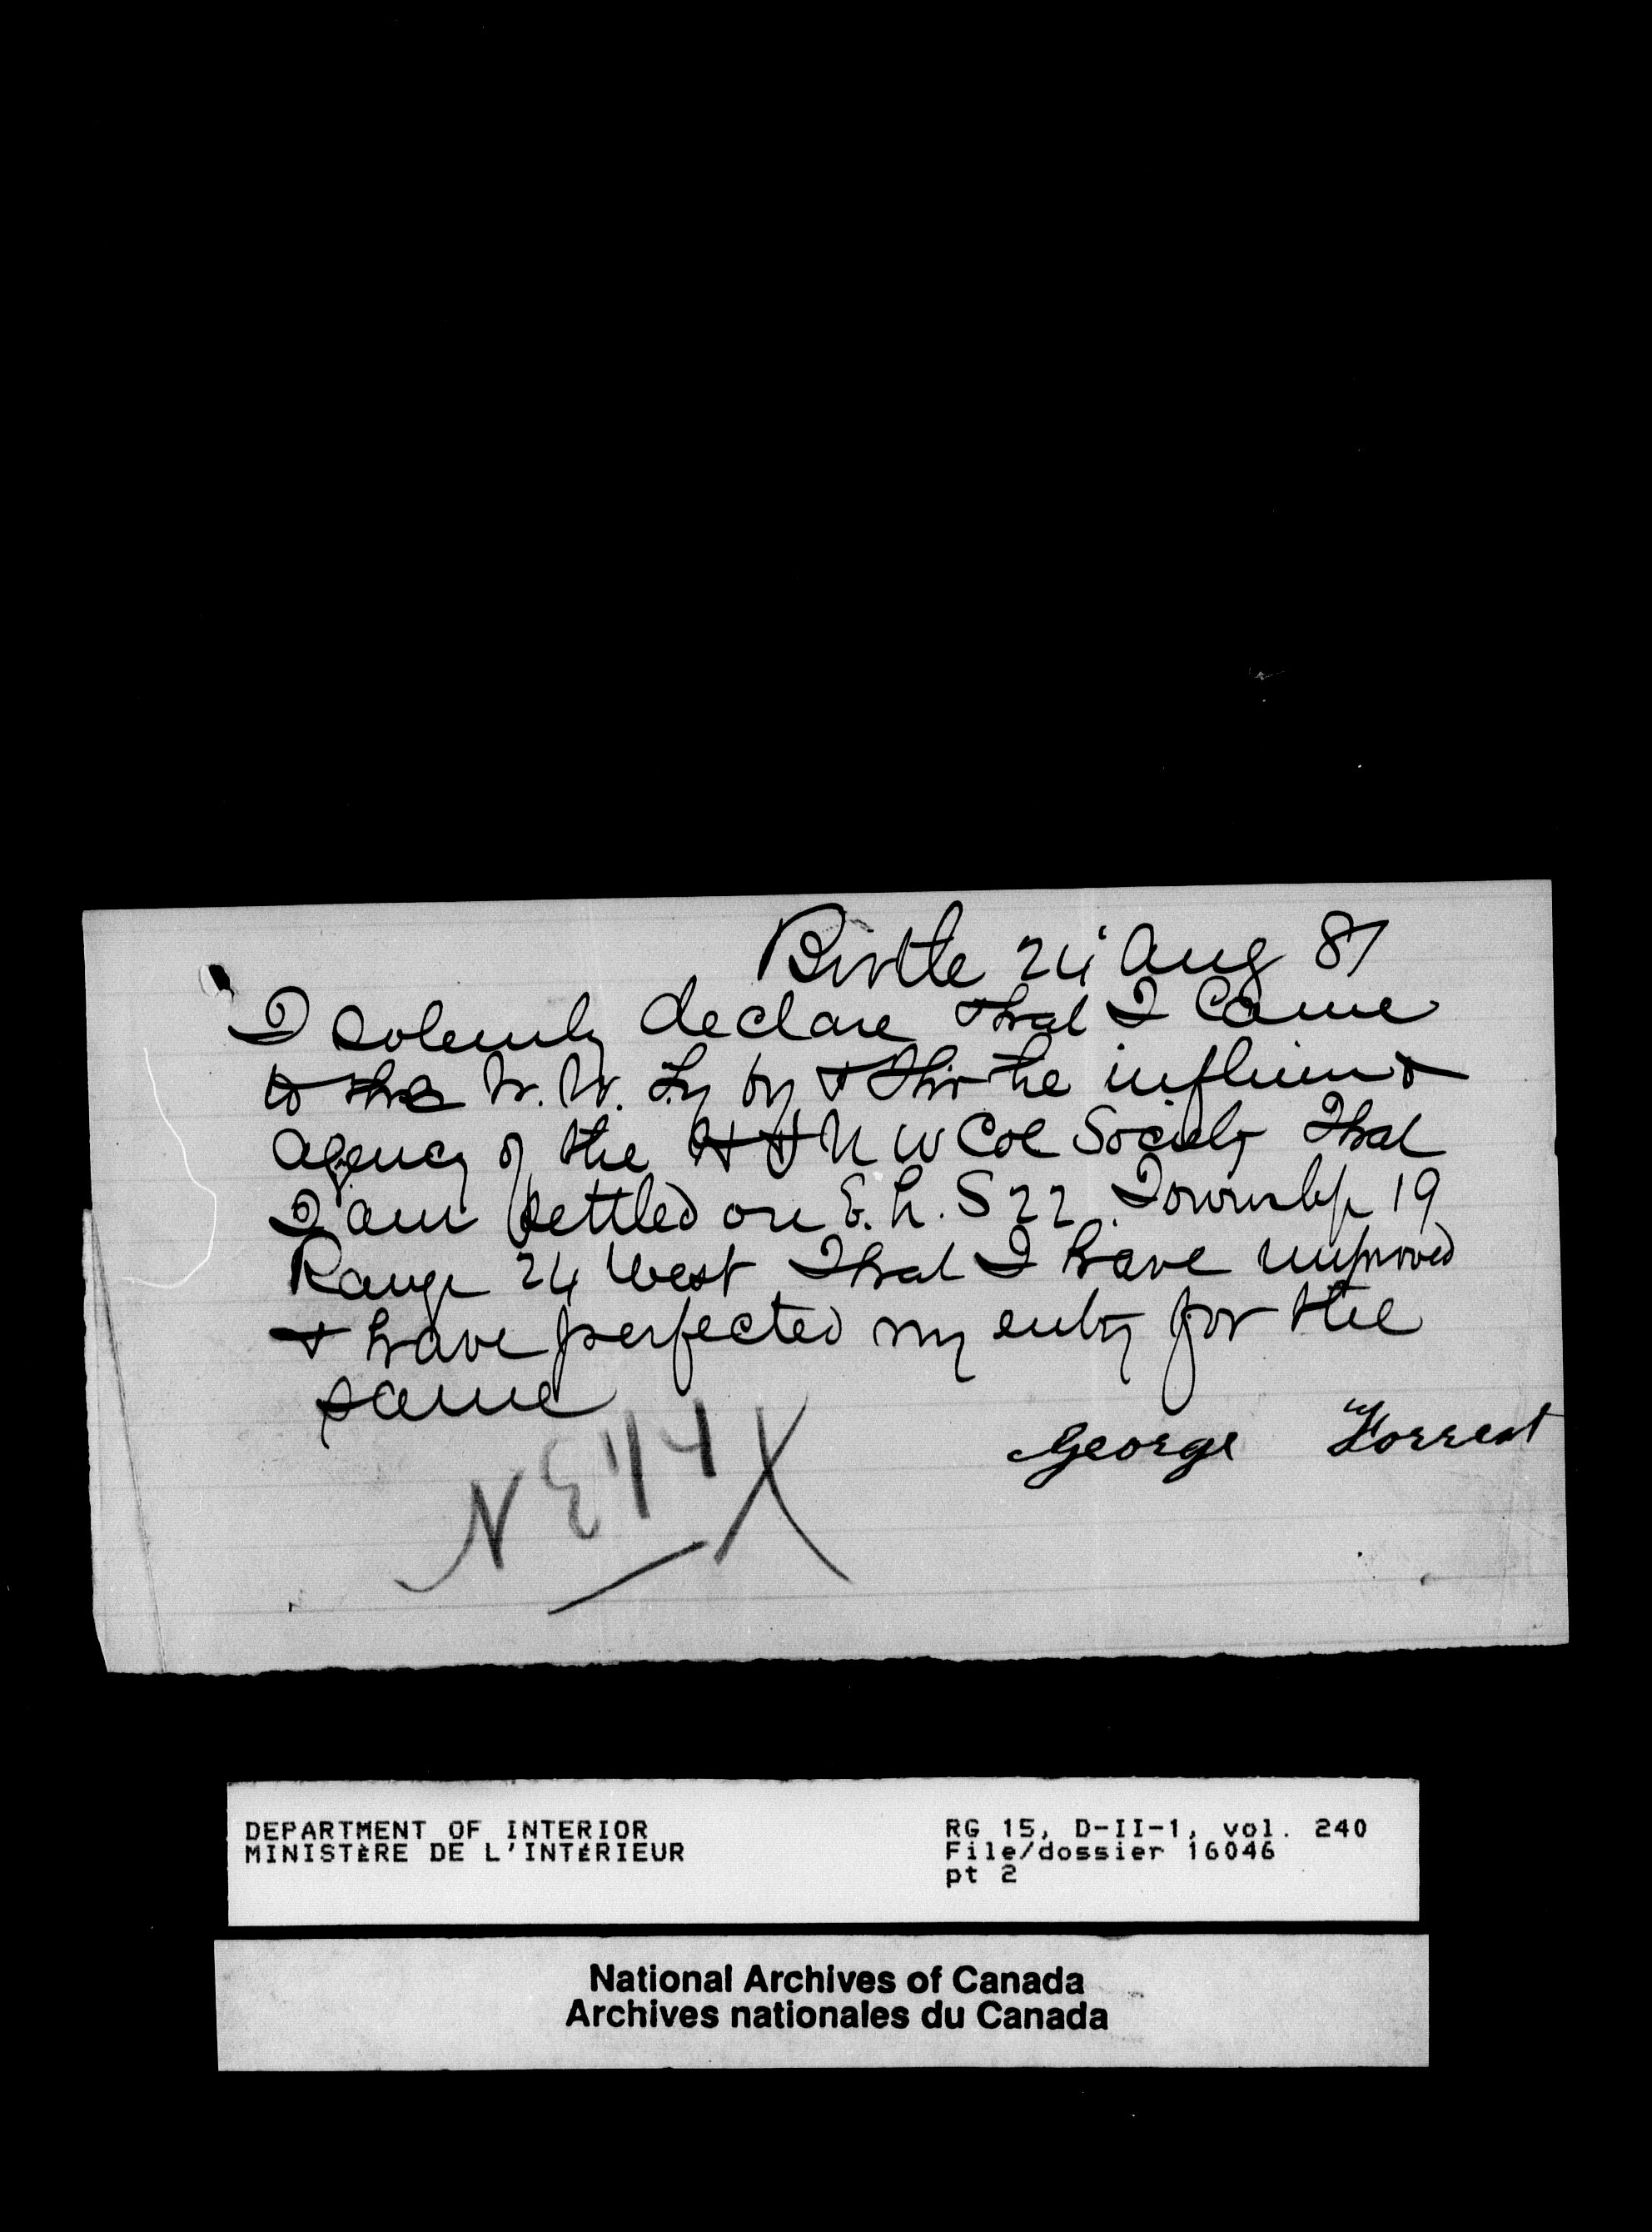 Birtle 24 Aug 87
I solemnly declare that I came
to the N. W. Ty by & thro the influence &
agency of the H & N W Col Society That
I am settled on E. h. S 22. Township 19
Range 24 West That I have improved
& have perfected my entry for the
same
George Forrest
NE 1/4 X
DEPARTMENT OF INTERIOR
MINISTÈRE DE L'INTÉRIEUR
RG 15, D-II-1, vol. 240
File/dossier 16046
pt 2
National Archives of Canada
Archives nationales du Canada